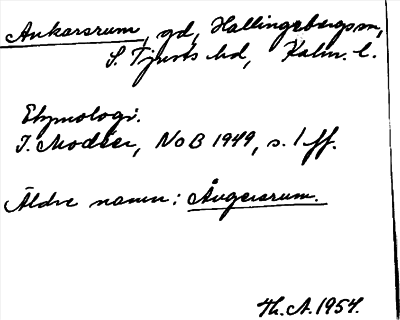 Ankarsrum, gd, Hallingebergs sn,
S. Tjusts hd, Kalm. l.
Etymologi:
I. Modéer, NoB 1949, s. 1 ff.
Äldre namn: Ångersrum.
Th. A. 1954.